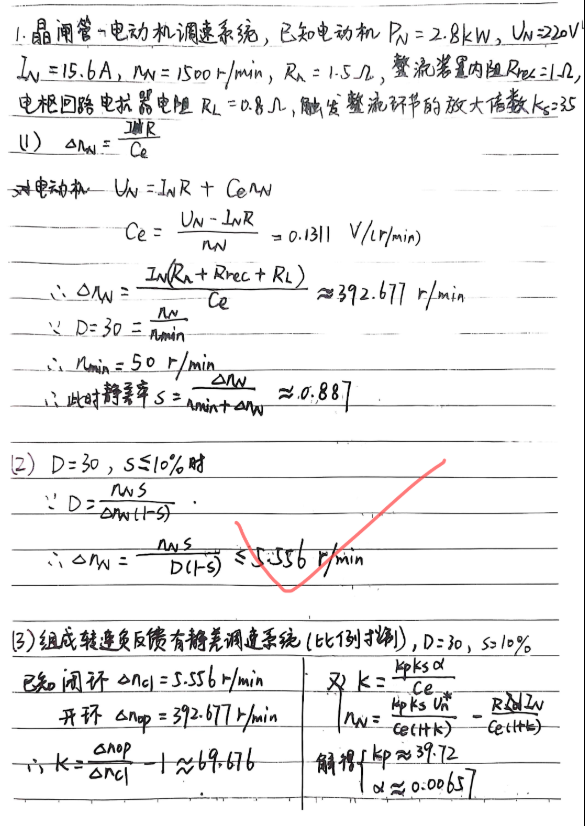 1. 晶闸管-电动机调速系统, 已知电动机 PN=2.8kW, UN=220V
IN=15.6A, nN=1500r/min, Ra=1.5Ω, 整流装置内阻Rrec=1Ω,
电枢回路电抗器电阻 RL=0.8Ω, 触发整流环节的放大倍数Ks=35
(1) ΔnN = INR / Ce
对电动机 UN = INR + CenN
Ce = (UN - INR) / nN = 0.1311 V/(r/min)
∴ ΔnN = IN(Ra + Rrec + RL) / Ce ≈ 392.677 r/min
∵ D=30 = nN / nmin
∴ nmin = 50 r/min
∴ 此时静差率 s = ΔnN / (nmin + ΔnN) ≈ 0.887
(2) D=30, s≤10% 时
∵ D = nNs / ΔnN(1-s)
∴ ΔnN = nNs / D(1-s) ≤ 5.556 r/min
(3) 组成转速负反馈有静差调速系统(比例控制), D=30, s=10%
已知 闭环 Δncl = 5.556r/min
开环 Δnop = 392.677r/min
∴ K = Δnop / Δncl - 1 ≈ 69.676
又 K = KpKsα / Ce
nN = KpKsUn* / Ce(1+K) - RIN / Ce(1+K)
解得 Kp ≈ 39.72
α ≈ 0.00657